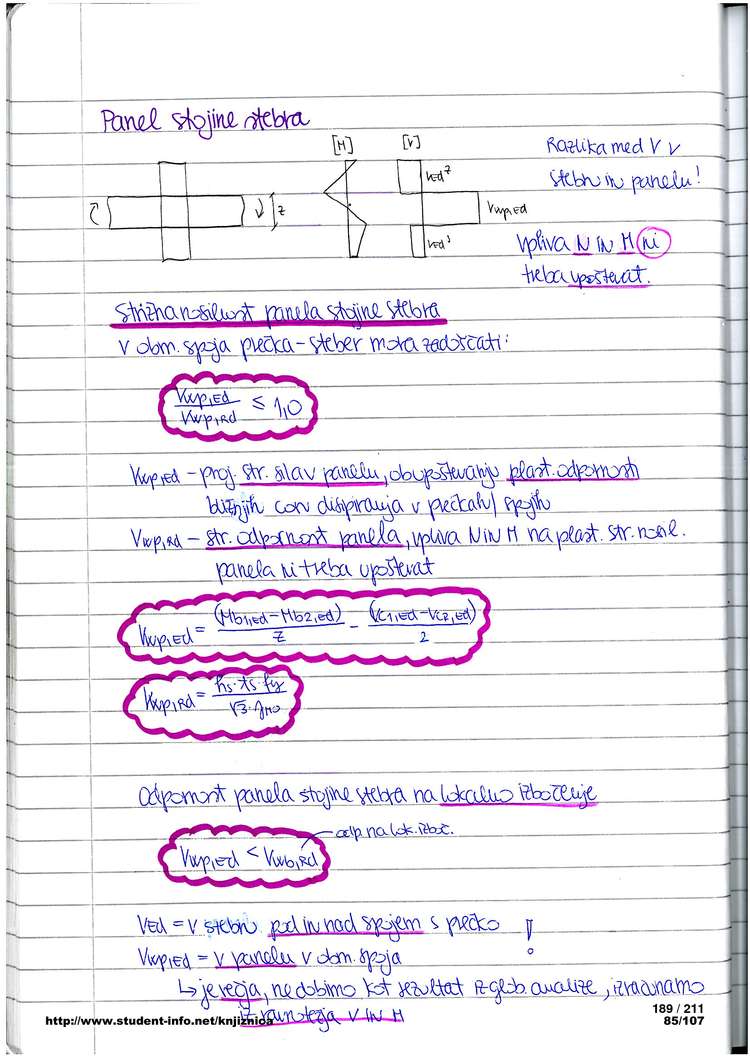 Panel stojine stebra
[M] [V]
Razlika med V v
stebru in panelu!
z
VEd²
Vwp,Ed
VEd¹
vpliva N in M ni
treba upoštevat.
Strižna nosilnost panela stojine stebra
V obm. spoja prečka - steber mora zadoščati:
Vwp,Ed / Vwp,Rd ≤ 1,0
Vwp,Ed - proj. str. sila v panelu, ob upoštevanju plast. odpornosti
bližnjih con disipiranja v prečkah/spojih
Vwp,Rd - str. odpornost panela, vpliva N in M na plast. str. nosil.
panela ni treba upoštevat
Vwp,Ed = (Mb1,Ed - Mb2,Ed) / z - (Vc1,Ed - Vc2,Ed) / 2
Vwp,Rd = hs · ts · fy / √3 · γM0
Odpornost panela stojine stebra na lokalno izbočenje
odp. na lok. izboč.
Vwp,Ed < Vwb,Rd
VEd = V stebru pod in nad spojem s prečko !
Vwp,Ed = V panelu v obm. spoja
↳ je večja, ne dobimo kot rezultat iz glob. analize, izračunamo
iz ravnotežja V in M
http://www.student-info.net/knjiznica
189 / 211
85/107